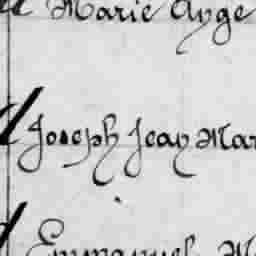 Marie Ange
Joseph Jean Mar
Emmanuel M